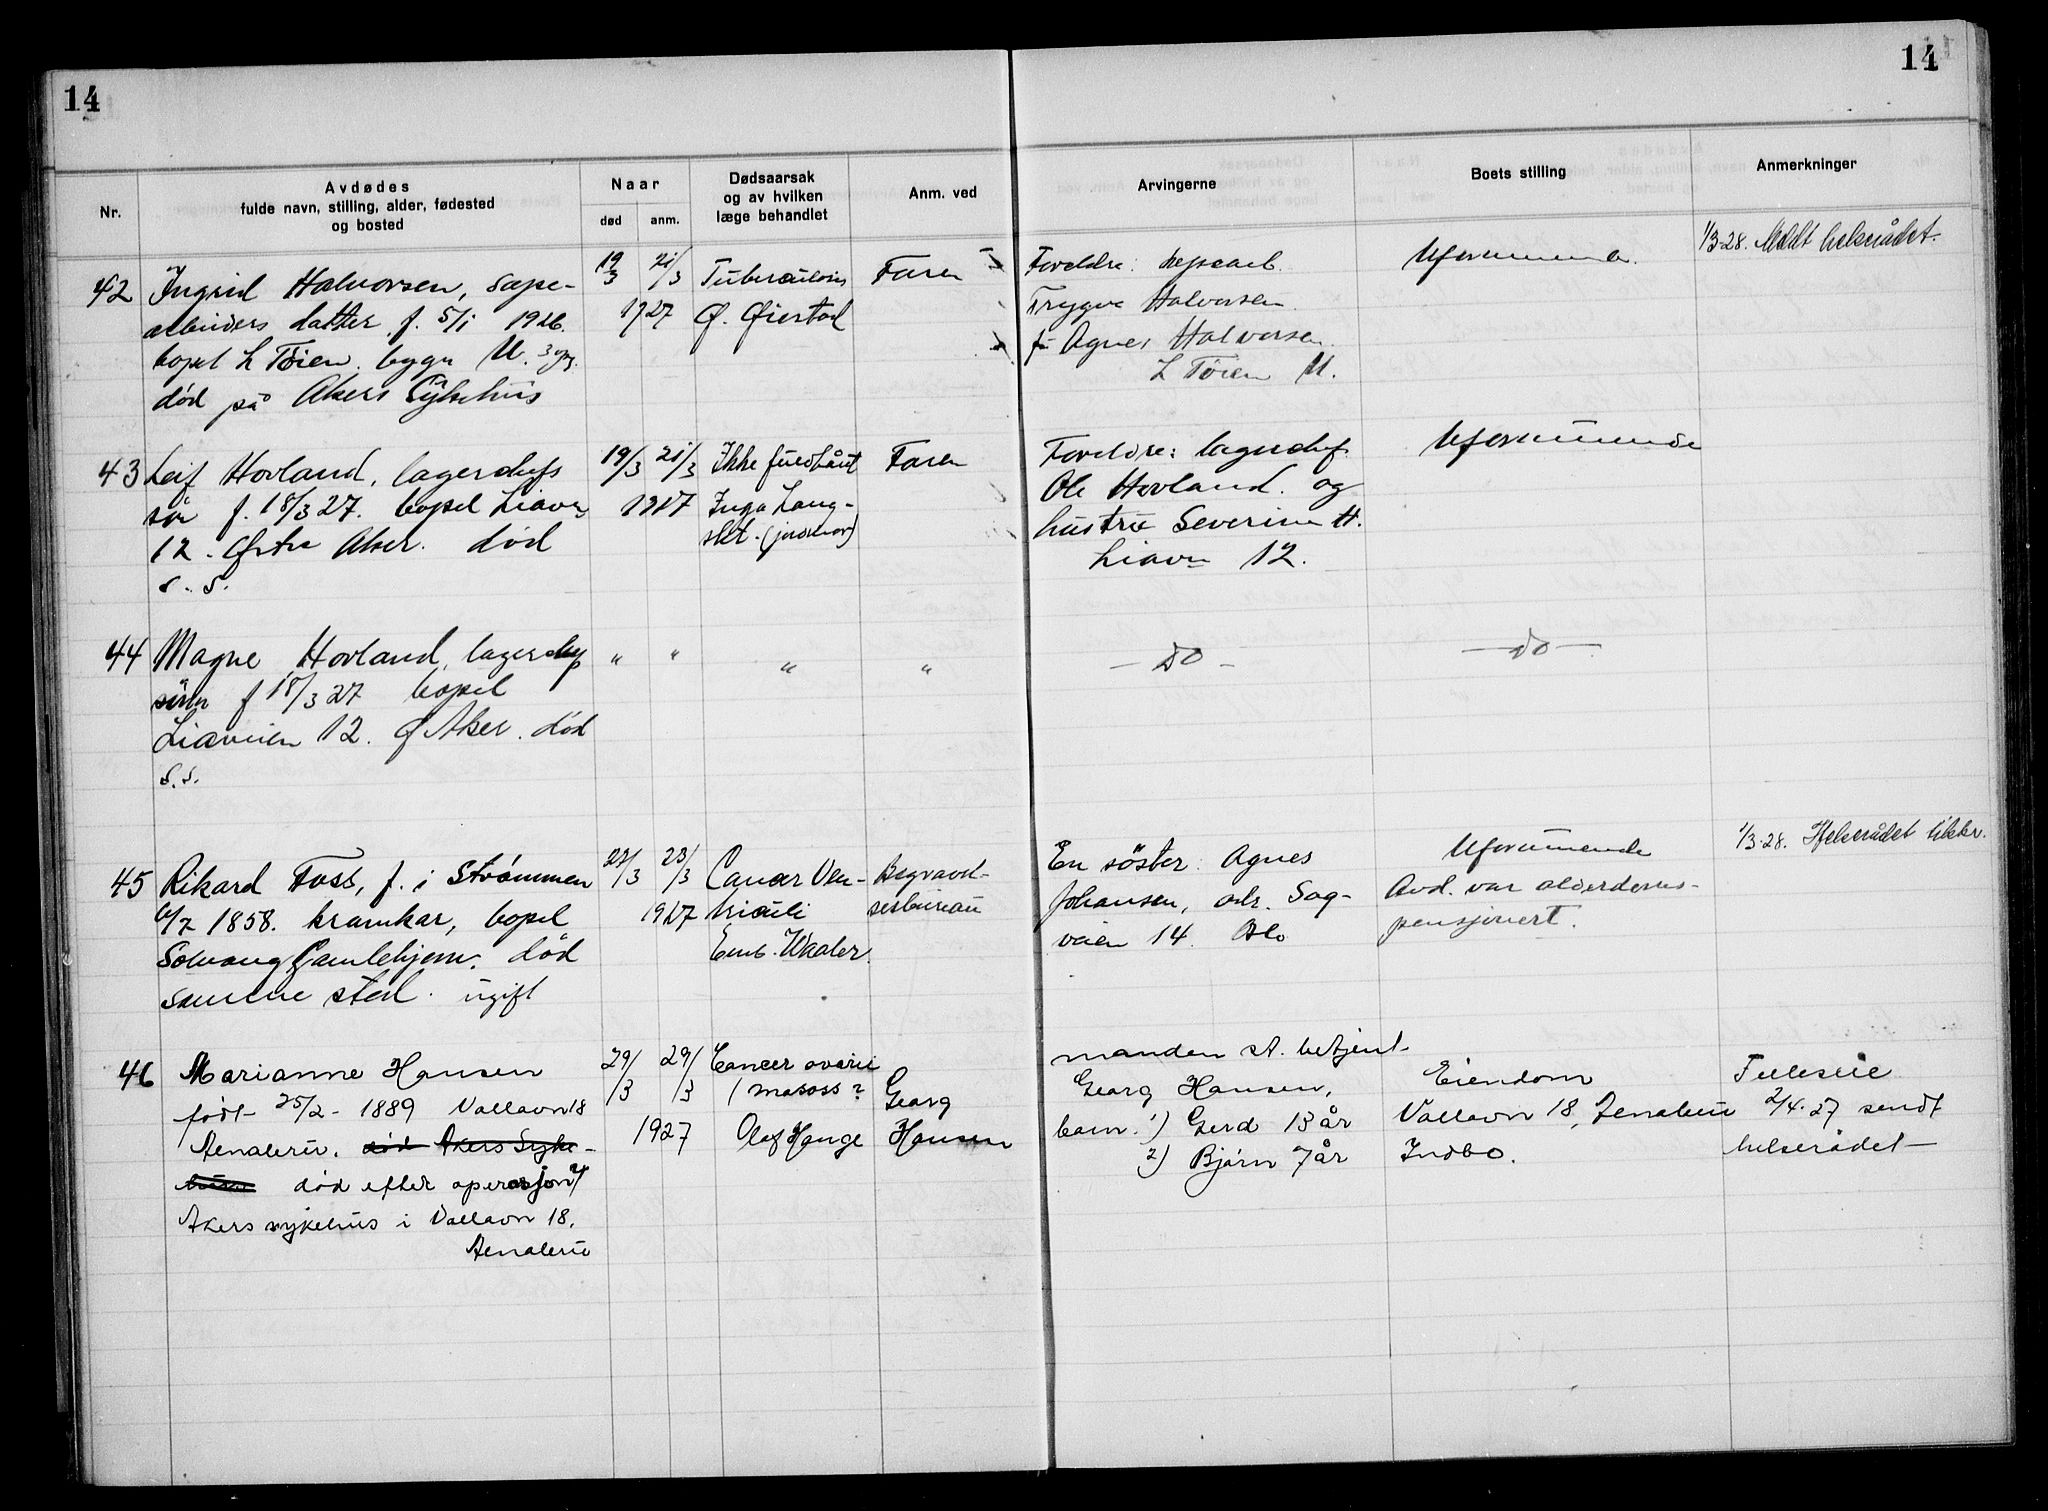 14
14
Nr.
Avdødes
fulde navn, stilling, alder, fødested
og bosted
Naar
død
anm.
Dødsaarsak
og av hvilken
læge behandlet
Anm. ved
Arvingerne
Boets stilling
Anmerkninger
42
Ingrid Halvorsen, sape-
arbeiders datter f. 5/1 1926.
bopel L Töien bygn U.
død på Akers Sykehus
19/3
21/3
1927
Tuberculosis
Ø. Øiestad
Faren
Foreldre:
Trygve Halvorsen
Agnes Halvorsen
L Töien U.
Uformuende.
1/3-28. Meldt helserådet.
43
Leif Hovland, lagerchefs
sön f. 18/3 27. bopel Liavn
12. Østre Aker. død
s. s.
19/3
21/3
1927
Ikke fuldbårt
Inga Lang-
slet. (jordmor)
Faren
Foreldre: lagerchef
Ole Hovland. og
hustru Severine H.
Liavn 12.
Uformuende
44
Magne Hovland, lagerchefs
sön f 18/3 27 bopel
Liaveien 12. Ø Aker. død
s.s.
"
"
"
"
— do —
— do —
45
Rikard Foss, f. i Strömmen
6/7 1858. kramkar, bopel
Solvang Gamlehjem. död
samme sted. ugift
23/3
1927
Cancer Ven-
triculi
Emb. Waaler.
Begravel-
sesbureau
En söster Agnes
Johansen, adr. Sag-
veien 14. Oslo
Uformuende
Avd. var alderdoms-
pensjonert.
1/3-28. Helserådet
46
Marianne Hansen
født 25/2 - 1889 Vallavn 18
død Akers Syke-
huse død efter operasjon
Akers sykehus i Vallavn 18.
29/3
29/3
1927
Cancer ovarii
Olaf Hauge
Georg
Hansen
manden st. betjent
Georg Hansen,
barn: 1) Gerd 13 år
2) Bjørn 7 år
Eiendom
Vallavn 18,
Indbo.
2/4-27 sendt
helserådet